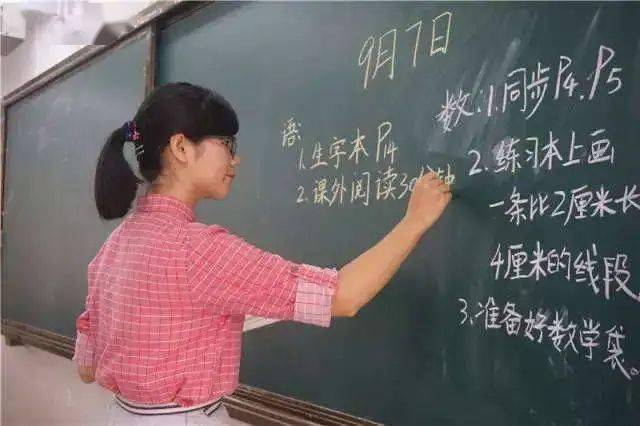 9月7日
语:
1.生字本 P4
2.课外阅读30分钟
数:1.同步P4、P5
2.练习本上画
一条比2厘米长
4厘米的线段
3.准备好数学袋。